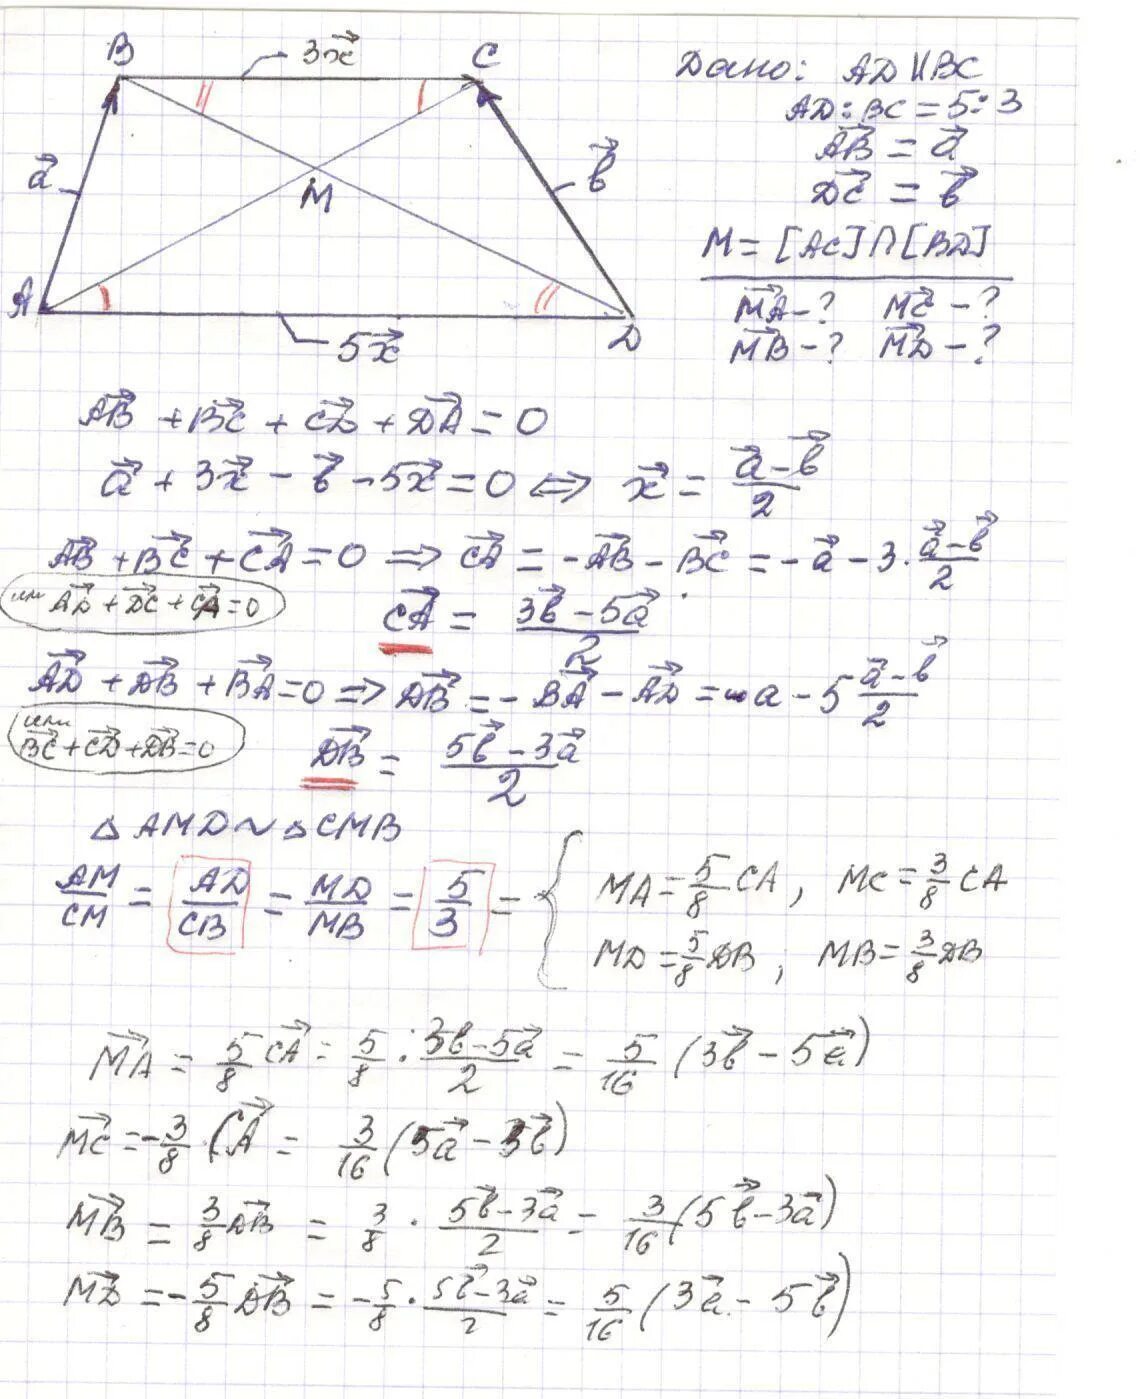 B 3x⃗ C
a⃗ b⃗
M
A D
5x⃗
Дано: AD ∥ BC
AD : BC = 5 : 3
AB⃗ = a⃗
DC⃗ = b⃗
M = [AC] ∩ [BD]
MA⃗ - ? MC⃗ - ?
MB⃗ - ? MD⃗ - ?
AB⃗ + BC⃗ + CD⃗ + DA⃗ = 0
a⃗ + 3x⃗ - b⃗ - 5x⃗ = 0 ⇔ x⃗ = (a⃗ - b⃗)/2
AB⃗ + BC⃗ + CA⃗ = 0 ⇒ CA⃗ = -AB⃗ - BC⃗ = -a⃗ - 3·(a⃗ - b⃗)/2
или AD⃗ + DC⃗ + CA⃗ = 0
CA⃗ = (3b⃗ - 5a⃗)/2
AD⃗ + DB⃗ + BA⃗ = 0 ⇒ DB⃗ = -BA⃗ - AD⃗ = a - 5 (a⃗ - b⃗)/2
или
BC⃗ + CD⃗ + DB⃗ = 0
DB⃗ = (5b⃗ - 3a⃗)/2
△ AMD ~ △ CMB
AM/CM = AD/CB = MD/MB = 5/3 = {
MA = 5/8 CA, MC = 3/8 CA
MD = 5/8 DB, MB = 3/8 DB
MA⃗ = 5/8 CA⃗ = 5/8 · (3b - 5a⃗)/2 = 5/16 (3b⃗ - 5a⃗)
MC⃗ = -3/8 · CA⃗ = 3/16 (5a⃗ - 3b⃗)
MB⃗ = 3/8 DB⃗ = 3/8 · (5b⃗ - 3a⃗)/2 = 3/16 (5b⃗ - 3a⃗)
MD⃗ = -5/8 DB⃗ = -5/8 · (5b⃗ - 3a⃗)/2 = 5/16 (3a⃗ - 5b⃗)